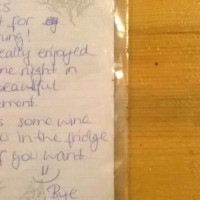 s
t for
ing!
eally enjoyed
ne night in
beautiful
ement.
s some wine
o in the fridge
f you want
Bye